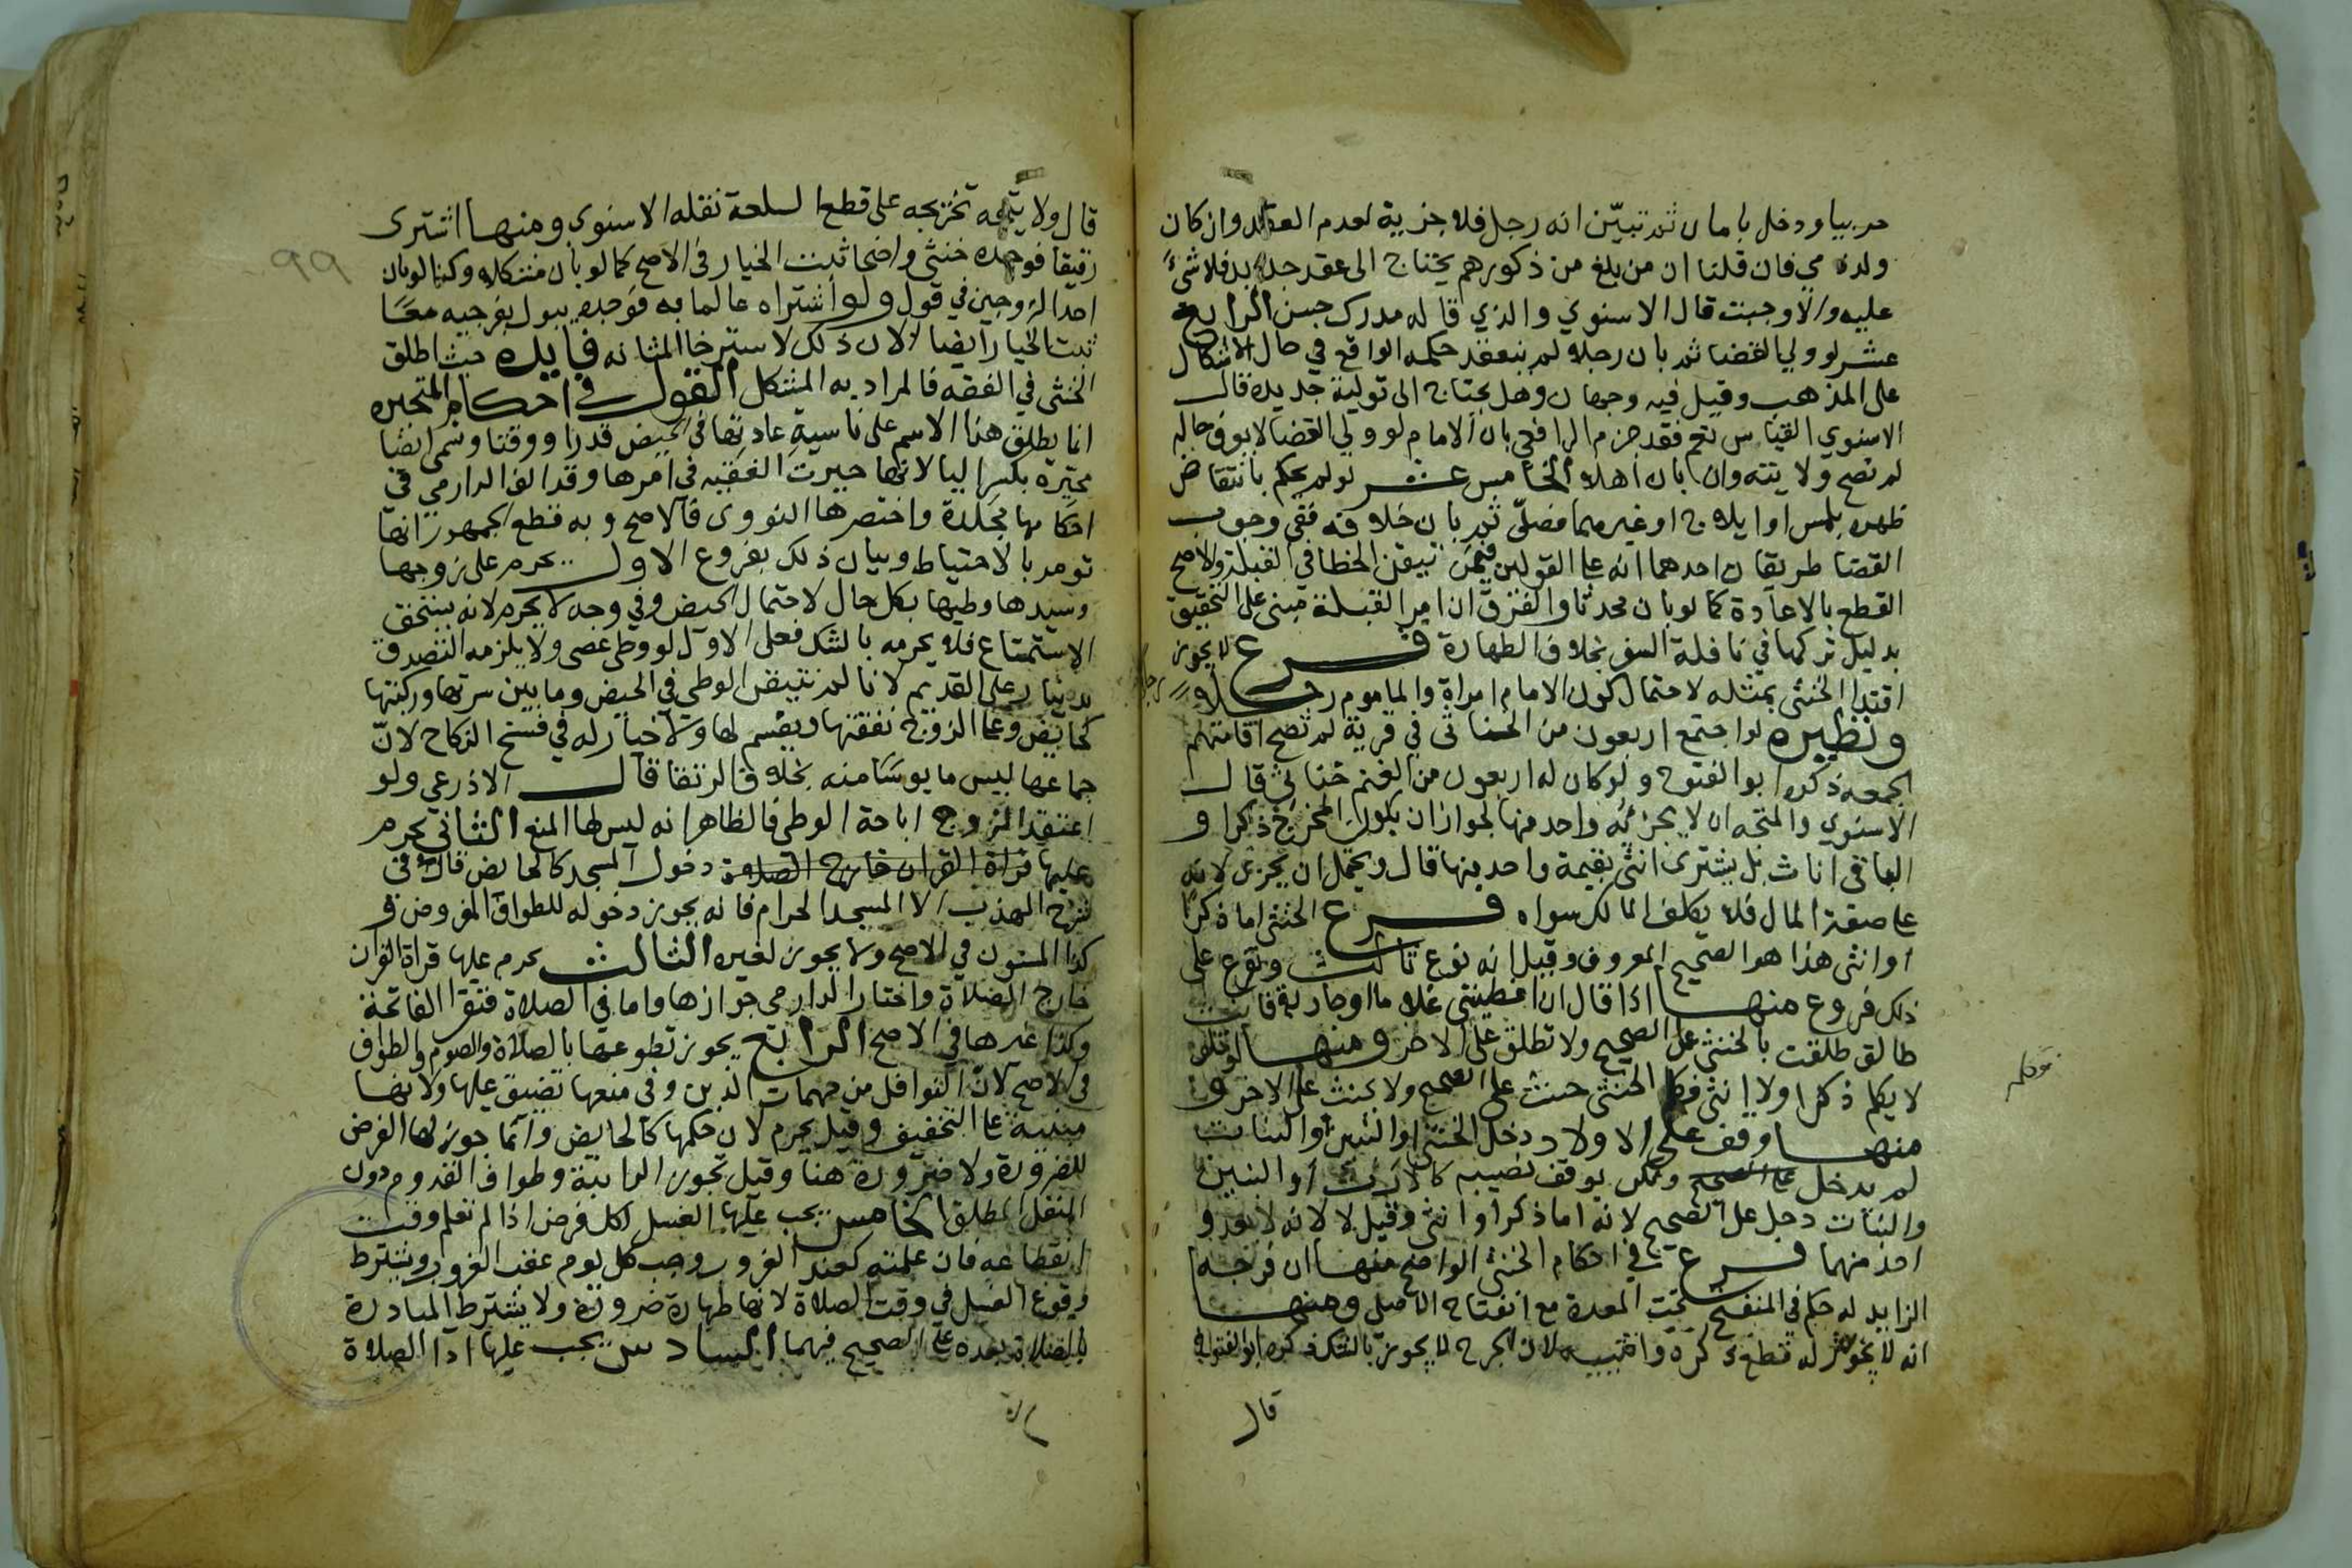 حربيا ودخل بامان ثم تبيّن انه رجل فلا جزية لعدم العقد وان كان
ولد ذمي فان قلنا ان من بلغ من ذكورهم يحتاج الى عقد جديد فلا شئ
عليه والا وجبت قال الاسنوي والذي قاله مدرك حسن الرابع
عشر لو ولي القضا ثم بان رجلا لم ينعقد حكمه الواقع في حال الاشكال
على المذهب وقيل فيه وجهان وهل يحتاج الى تولية جديدة قال
الاسنوي القياس نعم فقد جزم الرافعي بان الامام لو ولي القضا لا يعرف حاله
لم تصح ولايته وان بان اهلا الخامس عشر لو لم يحكم بانتقاض
طهره بلمس او ايلاج او غيرهما فصلّى ثم بان خلافه ففي وجوب
القضا طريقان احدهما انه على القولين فيمن تيقن الخطا في القبلة والاصح
القطع بالاعادة كما لو بان محدثا والفرق ان امر القبلة مبني على التخفيف
بدليل تركها في نافلة السفر بخلاف الطهارة فرع لا يجوز
اقتدا الخنثى بمثله لاحتمال كون الامام امراة والماموم رجلا
ونظيره لو اجتمع اربعون من الخناثى في قرية لم تصح اقامتهم
الجمعة ذكره ابو الفتوح ولو كان له اربعون من الغنم خناثى قال
الاسنوي والمتجه انه لا يجزئه واحد منها لجواز ان يكون المخرج ذكرا و
الباقي اناث بل يشترى انثى بقيمة واحد منها قال ويحتمل ان يجزى لانه
على صفة المال فلا يكلف المالك سواه فرع الخنثى اما ذكرا
او انثى هذا هو الصحيح المعروف وقيل انه نوع ثالث وتفرع على
ذلك فروع منها اذا قال ان اعطيتني غلاما او جارية فانت
طالق طلقت بالخنثى على الصحيح ولا تطلق على الاخر ومنها لو حلف
لا يكلم ذكرا ولا انثى فكلم الخنثى حنث على الصحيح ولا يحنث على الاخر و
منها وقف على الاولاد دخل الخنثى او البنين او البنات
لم يدخل على الصحيح ولكن يوقف نصيبه كالارث او البنين
والبنات دخل على الصحيح لانه اما ذكرا او انثى وقيل لا لانه لا يعد و
احد منهما فرع في احكام الخنثى الواضح منها ان فرجه
الزايد له حكم في المنفتح تحت المعدة مع انفتاح الاصلي ومنها
انه لا يجوز له قطع ذكره وانثييه لان الجرح لا يجوز بالشك ذكره ابو الفتوح
قال
قال ولا يتجه تخريجه على قطع السلعة نقله الاسنوي ومنها اشترى
رقيقا فوجده خنثى واضحا ثبت الخيار في الاصح كما لو بان مشكلا وكذا لو بان
احد الزوجين في قول ولو اشتراه عالما به فوجده يبول بفرجيه معًا
ثبت الخيار ايضا لان ذلك لاسترخا المثانه فايده حيث اطلق
الخنثى في الفقه فالمراد به المشكل القول في احكام المتحيره
انما يطلق هذا الاسم على ناسية عادتها في الحيض قدرا ووقتا وتسمى ايضا
محيّرة بكسر اليا لانها حيرت الفقيه في امرها وقد الف الدارمي في
احكامها مجلدة واختصرها النووى فالاصح وبه قطع الجمهور انها
تومر بالاحتياط وبيان ذلك بفروع الاول يحرم على زوجها
وسيدها وطيها بكل حال لاحتمال الحيض وفي وجه لا يحرم لانه يستحق
الاستمتاع فلا يحرمه بالشك فعلى الاول لو وطى عصى ولا يلزمه التصدق
بدينار على القديم لانا لم نتيقن الوطى في الحيض وما بين سرتها وركبتها
كحايض وعلى الزوج نفقتها ويقسم لها ولا خيار له في فسخ النكاح لانّ
جماعها ليس مايوسا منه بخلاف الرتقا قال الاذرعي ولو
اعتقد الزوج اباحة الوطى فالظاهر انه ليس لها المنع الثاني يحرم
عليها قراة القران خارج الصلاة دخول المسجد كالحايض قاله في
شرح المهذب الا المسجد الحرام فانه يجوز دخوله للطواف المفروض و
كذا المسنون في الاصح ولا يجوز لغيره الثالث يحرم عليها قراة القران
خارج الصلاة واختار الدارمي جوازها واما في الصلاة فتقرا الفاتحة
وكذا غيرها في الاصح الرابع يجوز تطوعها بالصلاة والصوم والطواف
في الاصح لان النوافل من مهمات الدين وفي منعها تضييق عليها ولانها
مبنية على التخفيف وقيل يحرم لان حكمها كالحايض وانما جوز لها الفرض
للضرورة ولا ضرورة هنا وقيل تجوز الراتبة وطواف القدوم دون
النفل المطلق الخامس يجب عليها الغسل لكل فرض اذا لم تعلم وقت
انقطاعه فان علمته كعند الغروب وجب كل يوم عقب الغروب ويشترط
وقوع الغسل في وقت الصلاة لانها طهارة ضرورة ولا يشترط المبادرة
بالصلاة بعده على الصحيح فيهما السادس يجب عليها اداا الصلاة